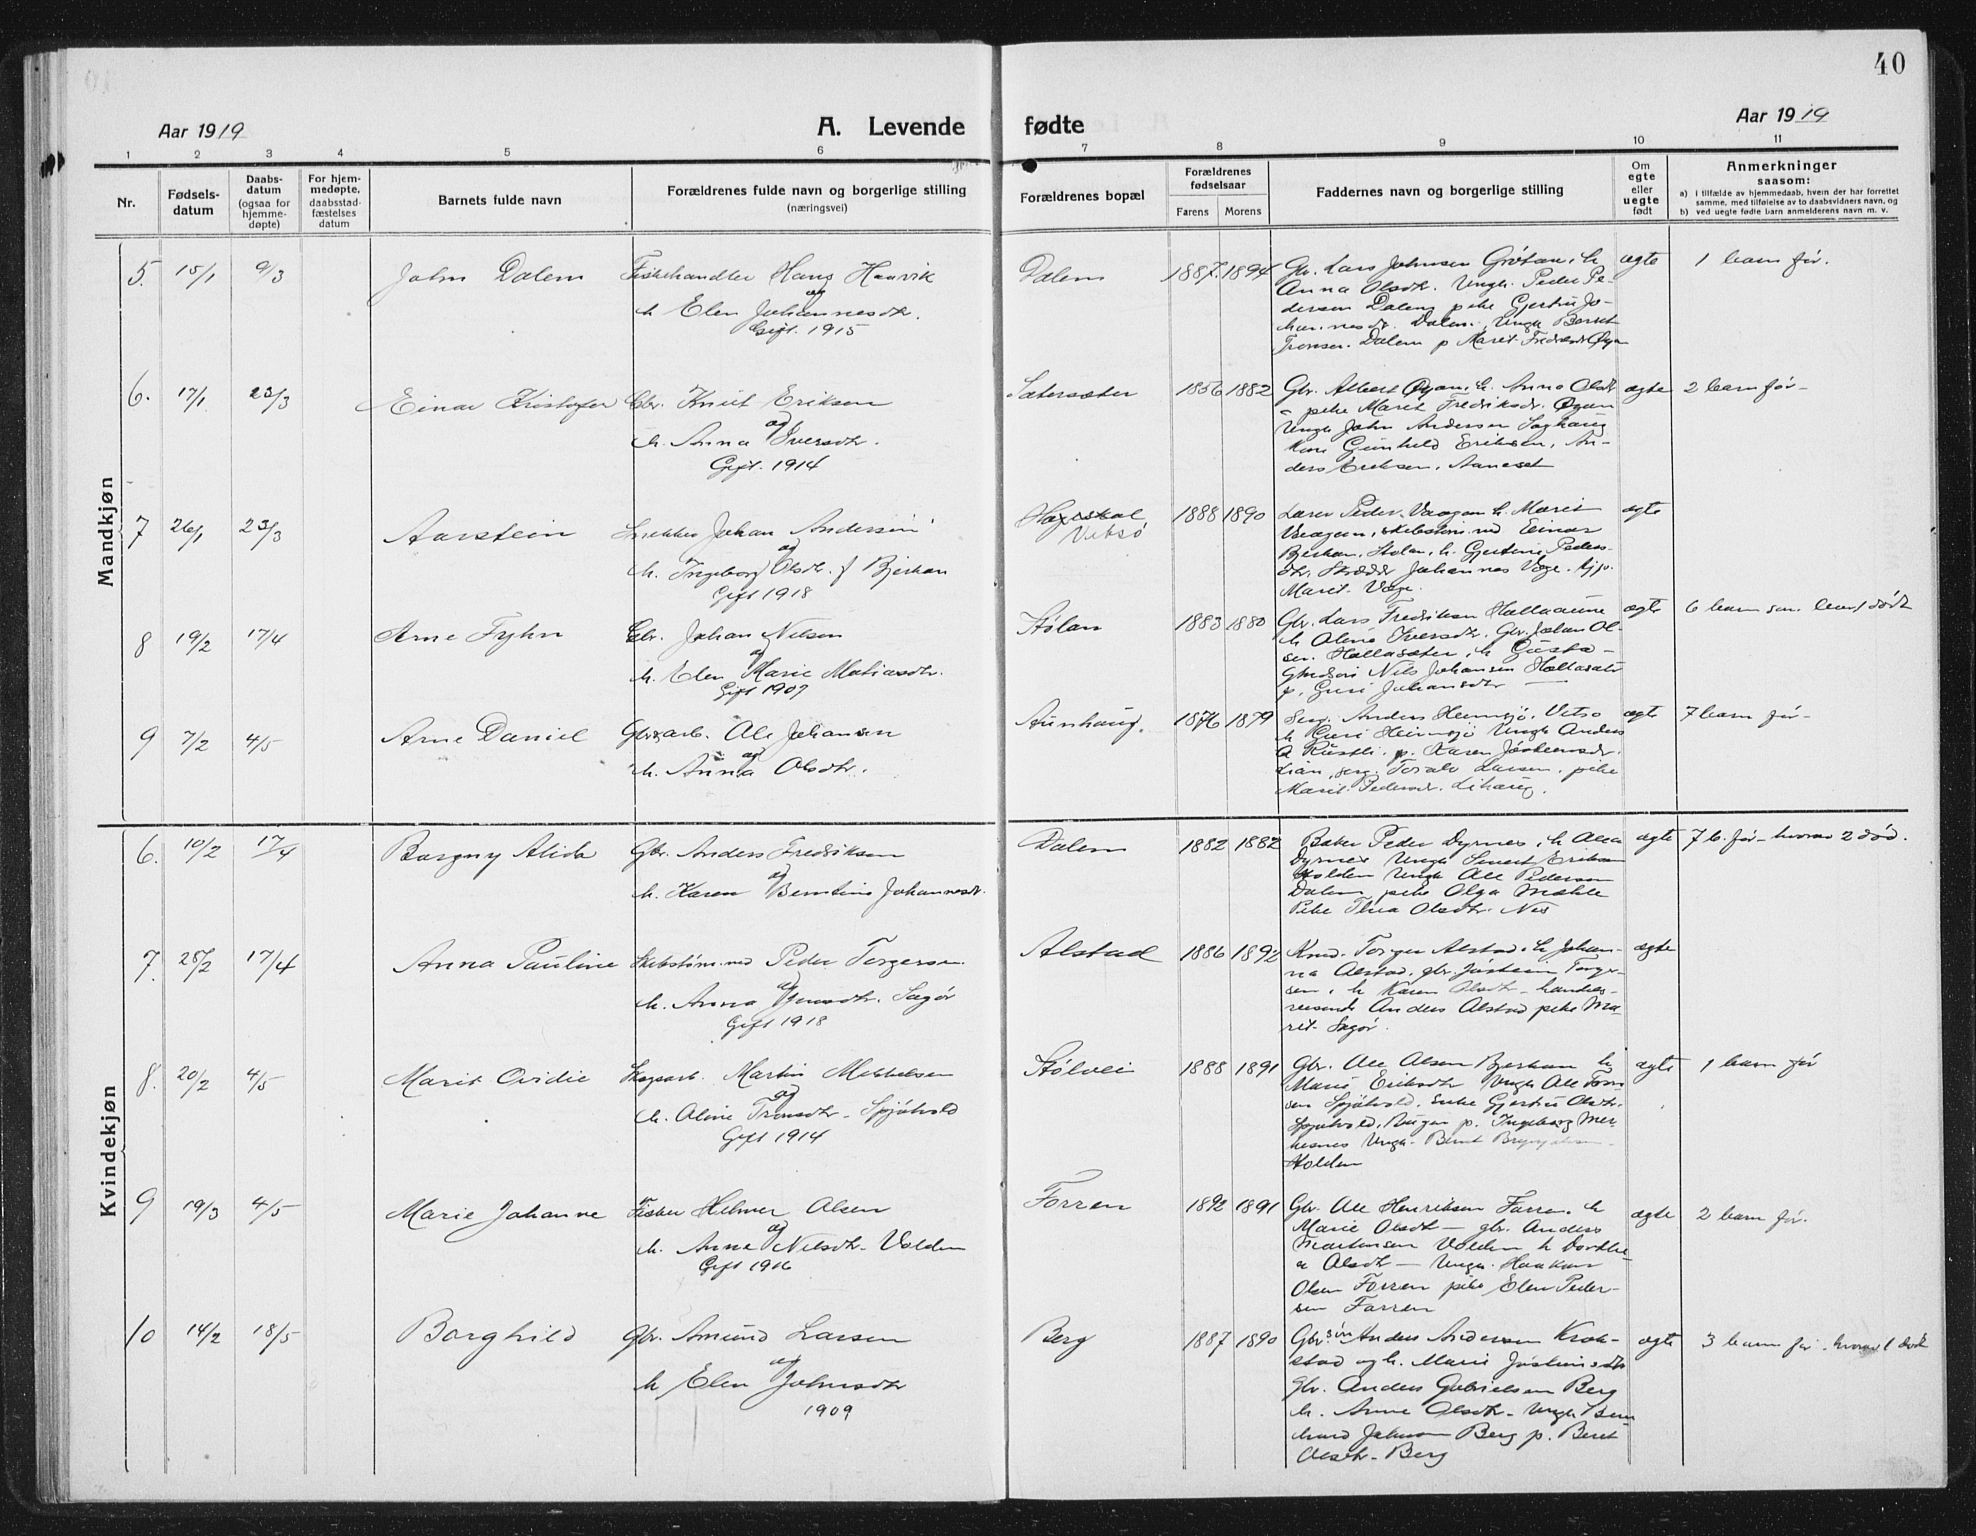 40
Aar 1919
A. Levende fødte
Aar 1919
1 2 3 4 5 6 7 8 9 10 11
Nr.
Fødsels-
datum
Daabs-
datum
(ogsaa for
hjemme-
døpte)
For hjem-
medøpte,
daabsstad-
fæstelses
datum
Barnets fulde navn
Forældrenes fulde navn og borgerlige stilling
(næringsvei)
Forældrenes bopæl
Forældrenes
fødselsaar
Farens Morens
Faddernes navn og borgerlige stilling
Om
egte
eller
uegte
født
Anmerkninger
saasom:
a) i tilfælde av hjemmedaab, hvem der har forrettet
samme, med tilføielse av to daabsvidners navn, og
b) ved uegte fødte barn anmelderens navn m. v.
Mandkjøn
5. 15/1 9/3 John Dalem
Fiskehandler Hans Haavik
og
h. Elen Johannesdtr.
Gift. 1915
Dalem 1887. 1894
Gbr. Lars Johnsen Grötan, h
Anna Olsdtr. Ungk. Peder Pe-
dersen Dalem pike Gjertru Jo-
hannesdr. Dalem, Ungk Berset
Tronsen. Dalem p Marit Fredriksdr Øyan
egte 1 barn før.
6. 17/1 23/3 Einar Kristofer
Gbr. Knut Eriksen
og
h. Anna Iversdtr.
Gift. 1914
Sætersæter 1856 1882
Gbr. Albert Øyan, h. Anna Olsdtr
- pike Marit Fredriksdr. Øyan
Ungk John Andersen Saghaug
Kone Gunhild Eriksen, An-
ders Eriksen, Aaneset
egte 2 barn før-
7 26/1 23/3 Aarstein
Snekker Johan Andersen
og
h. Ingeborg Olsdtr. f Bjerkan
Gift 1918
Vitsö 1888 1890
Lærer Peder Vaagan h. Marit
Vaagan, skibstøm.md Einar
Bjerkan, Stølan, h. Gjertine Peders-
dtr. Skrædder Johannes Vaage.
Marit Vaage.
egte
8 19/2 17/4 Arne Fyhn
Gbr. Johan Nilsen
og
h. Elen Marie Matiasdtr.
Gift 1907
Stølan 1883 1880
Gbr. Lars Fredriksen Hallaaune
h Oline Iversdtr. Gbr. Johan Ol-
sen. Hallasæter, h Gusta-
Gmdsøn Nils Johansen Hallasætr
p. Guri Johansdtr
egte 6 barn
9 7/2 4/5 Arne Daniel
Gbr.arb. Ole Johansen
og
h. Anna Olsdtr.
Aunhaug. 1876 1879
Anders Heimsjö. Vitsø
h Guri Heimsjö Ungk Anders
A Rustli, p. Karen
Lian, Toralv Larsen, pike
Marit Pedersdr. Lihaug.
egte 7 barn før-
Kvindekjøn
6. 10/2 17/4 Borgny Alida
Gbr. Anders Fredriksen
og
h. Karen Berntine Johannesdr.
Dalem 1882 1882
Baker Peder Dyrnes, h Olea
Dyrnes Ungk Sivert Eriksen
Holden Ungk Ole Pedersen
Dalem pike Olga Mæhle
Pike Thea Olsdtr. Nes
egte 7 b. før- hvorav 2 død.
7. 28/2 17/4 Anna Pauline
Skibstøm.md Peder Torgersen
og
h. Anna Jensdtr. Sagör
Gift 1918
Alstad 1886 1892
Torger Alstad. h Johan-
na Alstad, gbr. Jöstein Torger-
sen, h Karen Olsdtr - handels-
reisende Anders Alstad pike Ma-
rit Sagör.
egte
8. 20/2 4/5 Marit Ovidie
Skogsarb. Martin Mekkelsen
og
h. Oline Tronsdtr. Spjötvold
Gift 1914
Stølvei 1888 1891
Gbr. Ole Olsen Bjerkan h
Marie Eriksdtr Ungk Ole Tron-
sen Spjötvold, enke Gjertru Olsdtr.
Spjötvold, p. Ingeborg Mer-
kesnes Ungk. Bernt
Holden
egte 1 barn før
9 19/3 4/5 Marie Johanne
Fisker Helmer Olsen
og
h. Anna Nilsdtr. Volden
Gift 1916
Forren 1892 1891
Gbr. Ole Henriksen Forren, h
Marie Olsdtr - gbr. Anders
Martensen Volden h Dorthe-
a Olsdtr - Ungk. Haakon
Olsen Forren pike Elen Peder-
sen Forren
egte 2 barn før.
10 14/2 18/5 Borghild
Gbr. Amund Larsen
og
h Elen Johnsdtr
1909
Berg 1887 1890
Gbr.søn Anders Andersen Krok-
stad og h. Marie Jösteinsdtr
Gbr. Anders Gabrielsen Berg
h. Anne Olsdtr - Ungk Bern-
hard Johnsen Berg p. Beret
Olsdtr - Berg
egte 3 barn før. hvorav 1 død